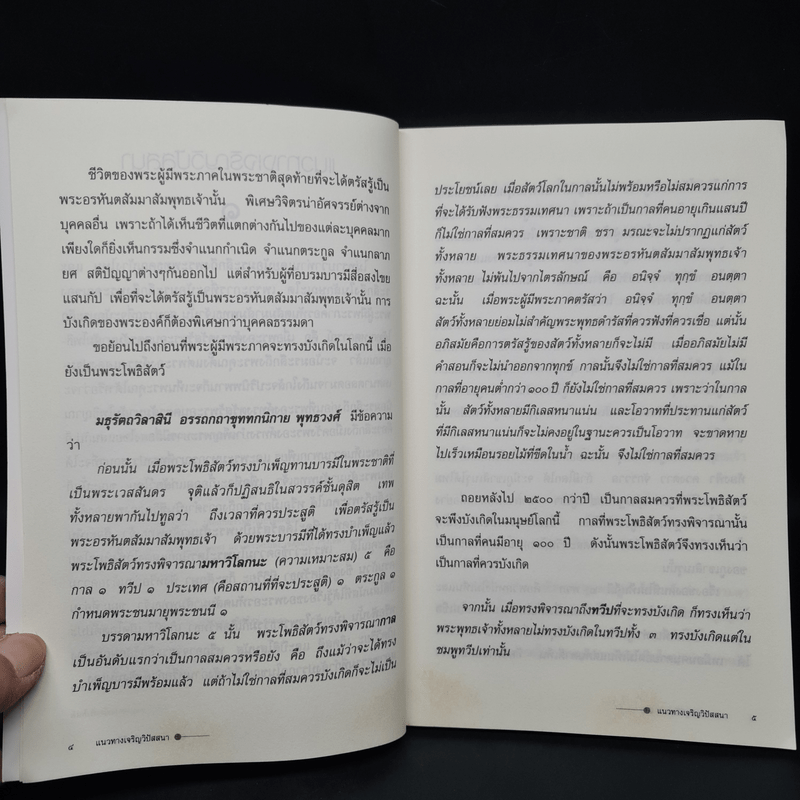 ชีวิตของพระผู้มีพระภาคในพระชาติสุดท้ายที่จะได้ตรัสรู้เป็น
พระอรหันตสัมมาสัมพุทธเจ้านั้น พิเศษวิจิตรน่าอัศจรรย์ต่างจาก
บุคคลอื่น เพราะถ้าได้เห็นชีวิตที่แตกต่างกันไปของแต่ละบุคคลมาก
เพียงใดก็ยิ่งเห็นกรรมซึ่งจำแนกกำเนิด จำแนกตระกูล จำแนกลาภ
ยศ สติปัญญาต่างๆกันออกไป แต่สำหรับผู้ที่อบรมบารมีสี่อสงไขย
แสนกัป เพื่อที่จะได้ตรัสรู้เป็นพระอรหันตสัมมาสัมพุทธเจ้านั้น การ
บังเกิดของพระองค์ก็ต้องพิเศษกว่าบุคคลธรรมดา
ขอย้อนไปถึงก่อนที่พระผู้มีพระภาคจะทรงบังเกิดในโลกนี้ เมื่อ
ยังเป็นพระโพธิสัตว์
มธุรัตถวิลาสินี อรรถกถาขุททกนิกาย พุทธวงศ์ มีข้อความ
ว่า
ก่อนนั้น เมื่อพระโพธิสัตว์ทรงบำเพ็ญทานบารมีในพระชาติที่
เป็นพระเวสสันดร จุติแล้วก็ปฏิสนธิในสวรรค์ชั้นดุสิต เทพ
ทั้งหลายพากันไปทูลว่า ถึงเวลาที่ควรประสูติ เพื่อตรัสรู้เป็น
พระอรหันตสัมมาสัมพุทธเจ้า ด้วยพระบารมีที่ได้ทรงบำเพ็ญแล้ว
พระโพธิสัตว์ทรงพิจารณามหาวิโลกนะ (ความเหมาะสม) ๕ คือ
กาล ๑ ทวีป ๑ ประเทศ (คือสถานที่ที่จะประสูติ) ๑ ตระกูล ๑
กำหนดพระชนมายุพระชนนี ๑
บรรดามหาวิโลกนะ ๕ นั้น พระโพธิสัตว์ทรงพิจารณากาล
เป็นอันดับแรกว่าเป็นกาลสมควรหรือยัง คือ ถึงแม้ว่าจะได้ทรง
บำเพ็ญบารมีพร้อมแล้ว แต่ถ้าไม่ใช่กาลที่สมควรบังเกิดก็จะไม่เป็น
๔ แนวทางเจริญวิปัสสนา
ประโยชน์เลย เมื่อสัตว์โลกในกาลนั้นไม่พร้อมหรือไม่สมควรแก่การ
ที่จะได้รับฟังพระธรรมเทศนา เพราะถ้าเป็นกาลที่คนอายุเกินแสนปี
ก็ไม่ใช่กาลที่สมควร เพราะชาติ ชรา มรณะจะไม่ปรากฏแก่สัตว์
ทั้งหลาย พระธรรมเทศนาของพระอรหันตสัมมาสัมพุทธเจ้า
ทั้งหลาย ไม่พ้นไปจากไตรลักษณ์ คือ อนิจฺจํ ทุกฺขํ อนตฺตา
ฉะนั้น เมื่อพระผู้มีพระภาคตรัสว่า อนิจฺจํ ทุกฺขํ อนตฺตา
สัตว์ทั้งหลายย่อมไม่สำคัญพระพุทธดำรัสที่ควรฟังที่ควรเชื่อ แต่นั้น
อภิสมัยคือการตรัสรู้ของสัตว์ทั้งหลายก็จะไม่มี เมื่ออภิสมัยไม่มี
คำสอนก็จะไม่นำออกจากทุกข์ กาลนั้นจึงไม่ใช่กาลที่สมควร แม้ใน
กาลที่อายุคนต่ำกว่า ๑๐๐ ปี ก็ยังไม่ใช่กาลที่สมควร เพราะว่าในกาล
นั้น สัตว์ทั้งหลายมีกิเลสหนาแน่น และโอวาทที่ประทานแก่สัตว์
ที่มีกิเลสหนาแน่นก็จะไม่คงอยู่ในฐานะควรเป็นโอวาท จะขาดหาย
ไปเร็วเหมือนรอยไม้ที่ขีดในน้ำ ฉะนั้น จึงไม่ใช่กาลที่สมควร
ถอยหลังไป ๒๕๐๐ กว่าปี เป็นกาลสมควรที่พระโพธิสัตว์
จะพึงบังเกิดในมนุษย์โลกนี้ กาลที่พระโพธิสัตว์ทรงพิจารณานั้น
เป็นกาลที่คนมีอายุ ๑๐๐ ปี ดังนั้นพระโพธิสัตว์จึงทรงเห็นว่า
เป็นกาลที่ควรบังเกิด
จากนั้น เมื่อทรงพิจารณาถึงทวีปที่จะทรงบังเกิด ก็ทรงเห็นว่า
พระพุทธเจ้าทั้งหลายไม่ทรงบังเกิดในทวีปทั้ง ๓ ทรงบังเกิดแต่ใน
ชมพูทวีปเท่านั้น
แนวทางเจริญวิปัสสนา ๕